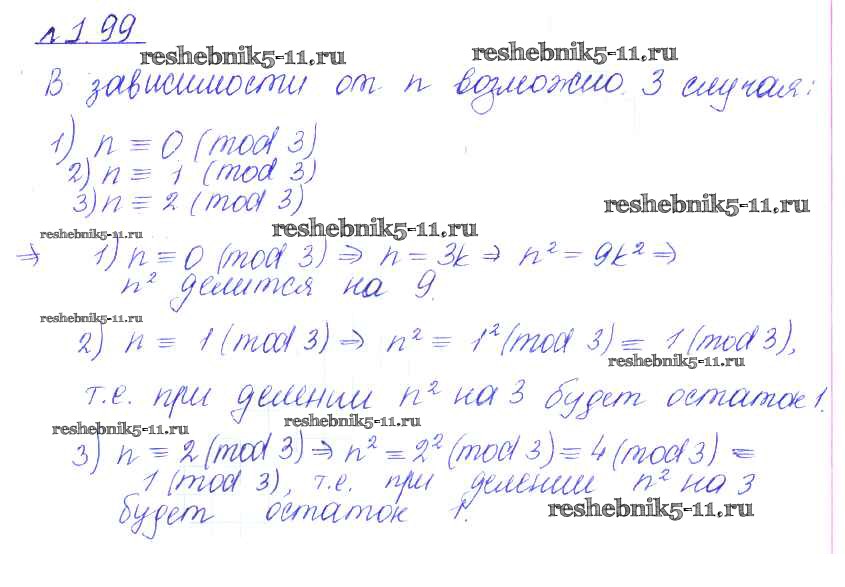 №1.99
reshebnik5-11.ru reshebnik5-11.ru
В зависимости от n возможно 3 случая:
1) n ≡ 0 (mod 3)
2) n ≡ 1 (mod 3)
3) n ≡ 2 (mod 3)
reshebnik5-11.ru
reshebnik5-11.ru reshebnik5-11.ru
⇒ 1) n ≡ 0 (mod 3) ⇒ n = 3k ⇒ n² = 9k² ⇒
n² делится на 9.
reshebnik5-11.ru
2) n ≡ 1 (mod 3) ⇒ n² ≡ 1² (mod 3) ≡ 1 (mod 3),
reshebnik5-11.ru
т.е. при делении n² на 3 будет остаток 1.
reshebnik5-11.ru reshebnik5-11.ru
3) n ≡ 2 (mod 3) ⇒ n² ≡ 2² (mod 3) ≡ 4 (mod 3) ≡
1 (mod 3), т.е. при делении n² на 3
будет остаток 1.
reshebnik5-11.ru